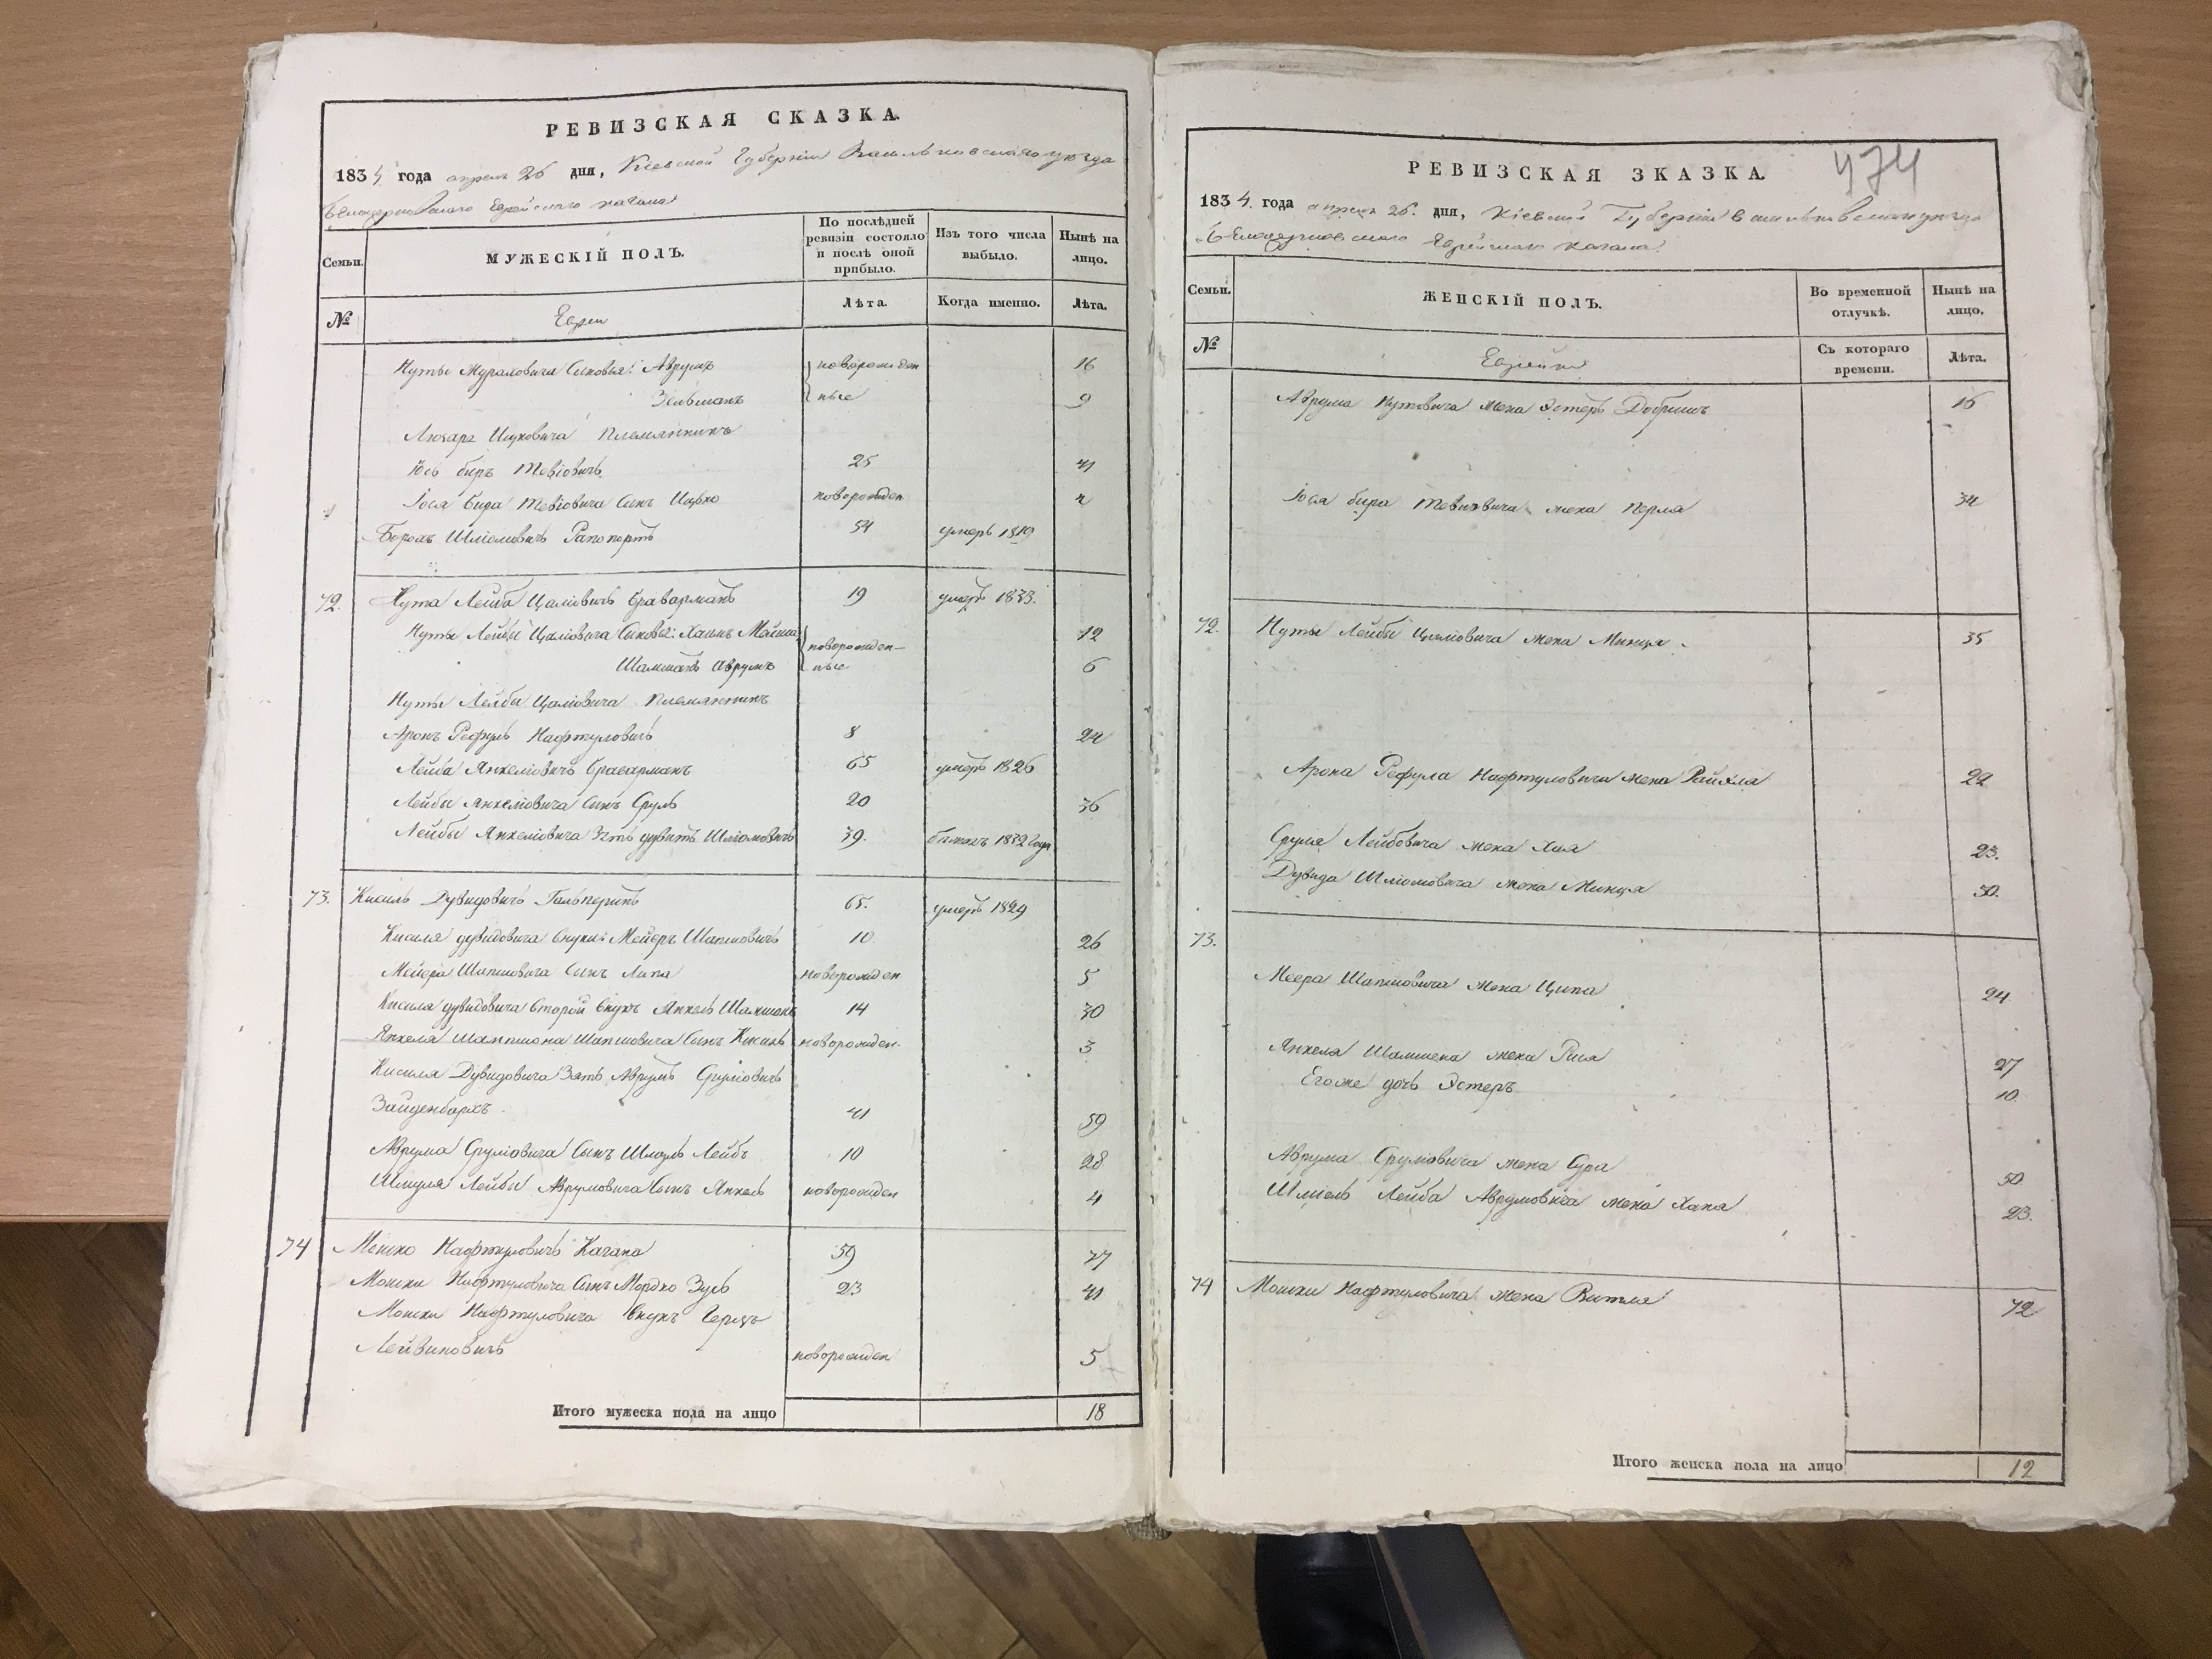 РЕВИЗСКАЯ СКАЗКА.
1834 года апреля 26 дня, Кіевской Губерніи Васильковскаго уезда
Белоцерковскаго Еврейскаго кагала
Семьи.
МУЖЕСКІЙ ПОЛЪ.
По послѣдней ревизіи состояло и послѣ оной прибыло.
Изъ того числа выбыло.
Нынѣ на лицо.
№
Евреи
Лѣта.
Когда именно.
Лѣта.
Нуты Сыновья: Аврумъ новорожден 16
Зельманъ ные 9
Ицковича племянникъ
Іось биръ Тевіовичъ 25 41
Іося бира Тевіовича Сынъ Ицько новорожден
Борохъ Шліомовичъ Рапопортъ 54 умеръ 1819
72. Нута Лейба Цаліовичъ Браварманъ 19 умеръ 1833.
Нуты Лейбы Цаліовича Сыновья: Хаимъ 12
новорожден-
Аврумъ ные 6
Нуты Лейбы Цаліовича племянникъ
Аронъ Рефулъ Нафтуловичъ 8 24
Лейба Янкеліовичъ Браварманъ 65 умеръ 1826
Лейбы Янкеліовича Сынъ Сруль 20 36
Лейбы Янкеліовича Зять дувидъ Шліомовичъ 39. 1832 года
73. Кисиль Дувидовичъ Гальперинъ 65. умеръ 1829
Кисиля дувидовича внуки: Мейеръ Шапшовичъ 10. 26
Мейера Шапшовича Сынъ Липа новорожден 5
Кисиля дувидовича второй внукъ Янкель Шамшонъ 14 30
Янкеля Шамшона Шапшовича Сынъ Кисиль новорожден. 3
Кисиля Дувидовича Зять Аврумъ Сруліовичъ
Зайденбархъ. 41 59
Аврума Сруліовича Сынъ Шмуль Лейбъ 10 28
Шмуля Лейбы Аврумовича Сынъ Янкель новорожден 4
74 Мошко Нафтуловичъ Кагана 59 77
Мошки Нафтуловича Сынъ Мордко Зусь 23 41
Мошки Нафтуловича внукъ Герцъ
Лейвиковичъ новорожден 5
Итого мужеска пола на лицо 18
474
РЕВИЗСКАЯ ЗКАЗКА.
1834. года апреля 26. дня, Кіевской Губерніи Васильковскаго уезда
Белоцерковскаго Еврейскаго кагала.
Семьи.
ЖЕНСКІЙ ПОЛЪ.
Во временной отлучкѣ.
Нынѣ на лицо.
№
Еврейки
Съ котораго времени.
Лѣта.
Аврума Нутовича жена Эстеръ Добришъ 16
Іося бира Тевиовича жена Перля 34
72. Нуты Лейбы Цаліовича жена Минця. 35
Арона Рефула Нафтуловича жена Райхла 22
Сруля Лейбовича жена Хая 23.
Дувида Шліомовича жена Минця 30.
73.
Меера Шапшовича жена Ципа 24
Янкеля Шамшена жена Рися 27
Егоже дочь Эстеръ 10.
Аврума Сруліовича жена Сура 50
Шміель Лейба Аврумовича жена Хана 23.
74 Мошки Нафтуловича жена Витля 72
Итого женска пола на лицо 12